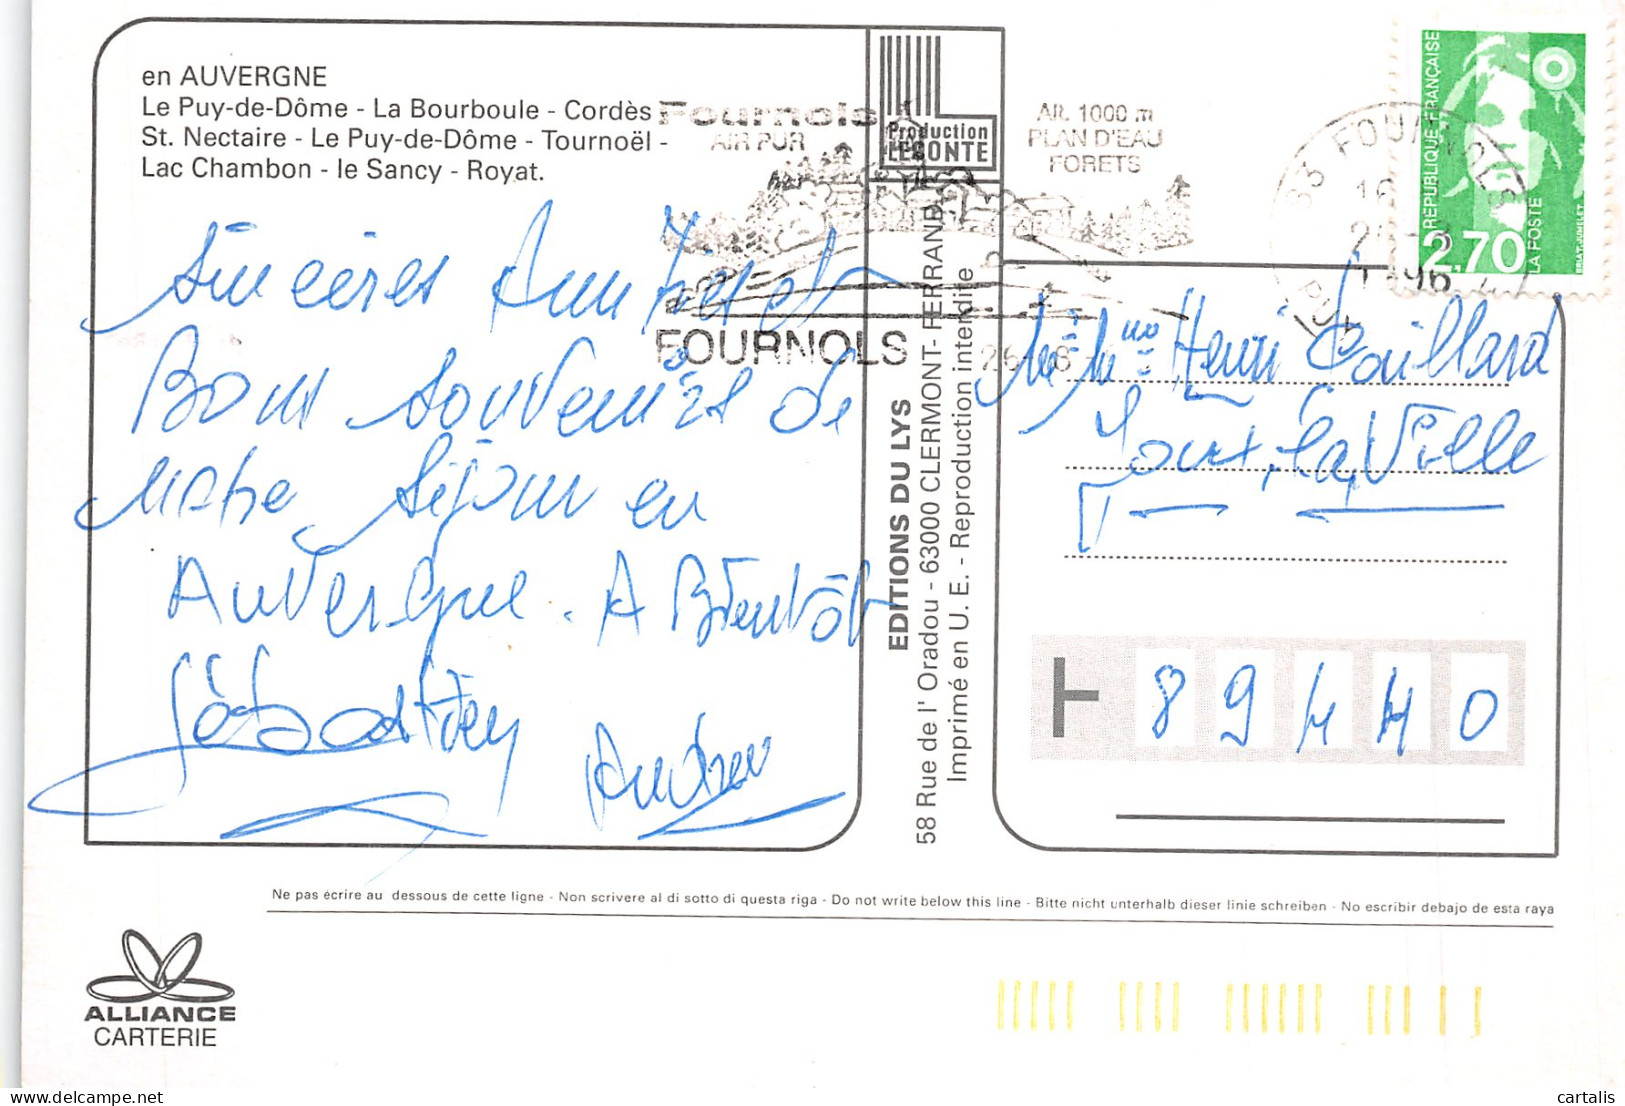 en AUVERGNE
Le Puy-de-Dôme - La Bourboule - Cordès
St. Nectaire - Le Puy-de-Dôme - Tournoël -
Lac Chambon - le Sancy - Royat.
Production
LECONTE
Fournols
AIR PUR
Alt. 1000 m
PLAN D'EAU
FORETS
FOURNOLS
63 FOURNOLS
16
PUY
RÉPUBLIQUE FRANÇAISE
2,70
LA POSTE
Sincères Amitiés et
Bons souvenirs de
notre séjour en
Auvergne. A Bientôt
Sébastien
Andrée
EDITIONS DU LYS
58 Rue de l'Oradou - 63000 CLERMONT-FERRAND
Imprimé en U. E. - Reproduction interdite
Mr Mme Henri
Joux la Ville
89440
Ne pas écrire au dessous de cette ligne - Non scrivere al di sotto di questa riga - Do not write below this line - Bitte nicht unterhalb dieser linie schreiben - No escribir debajo de esta raya
ALLIANCE
CARTERIE
cartalis